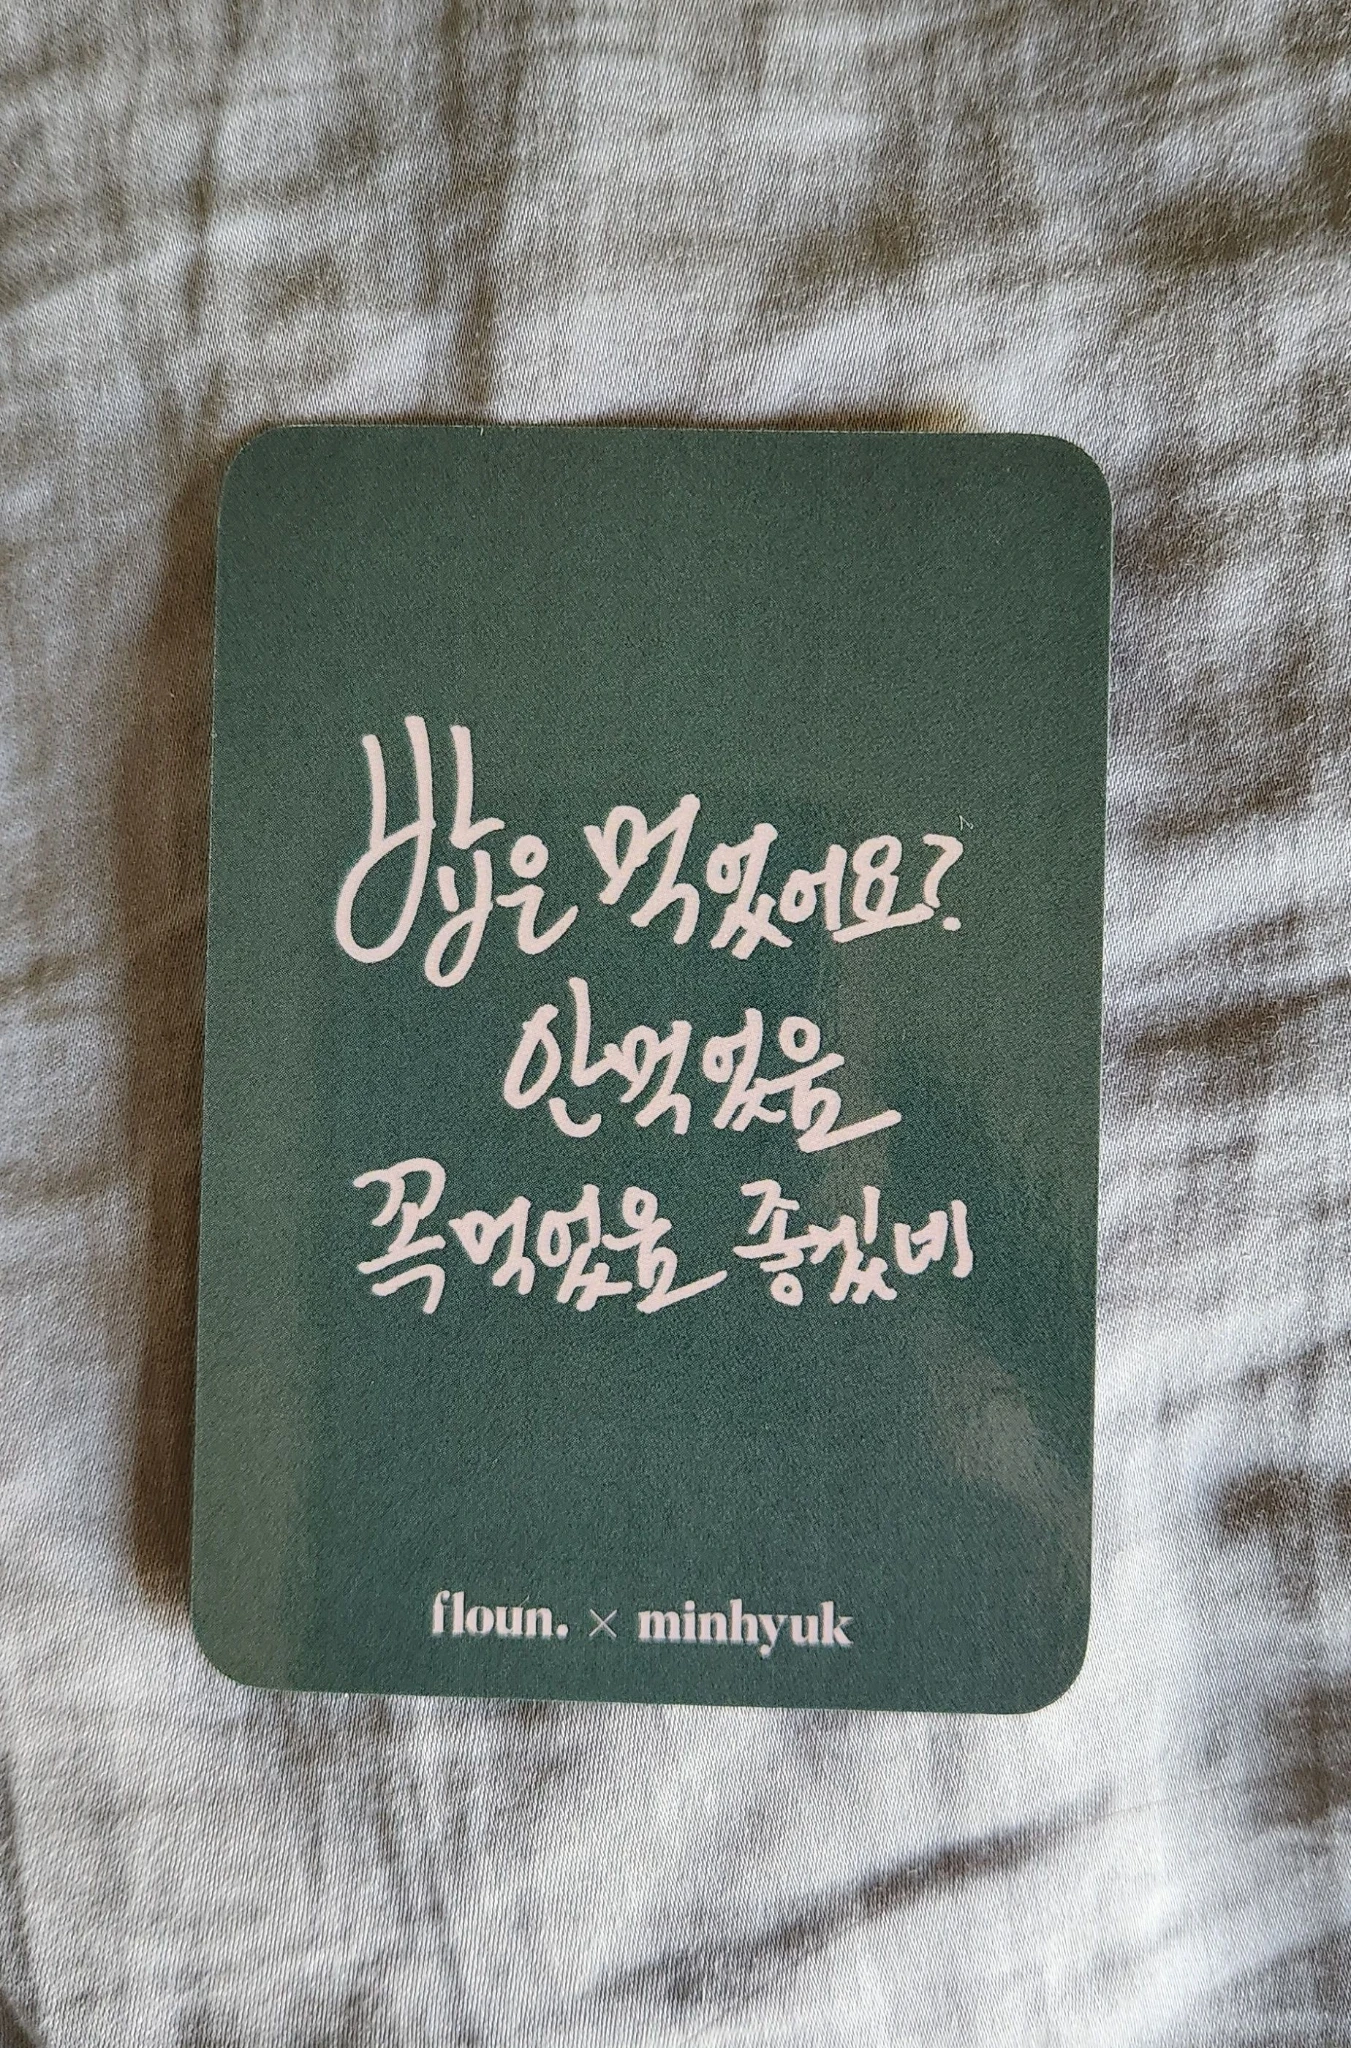 밥은 먹었어요?
안먹었음
꼭먹었음 좋겠네
floun. × minhyuk